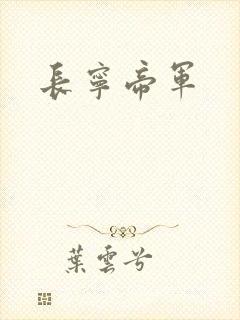 長寧帝軍
葉雲兮